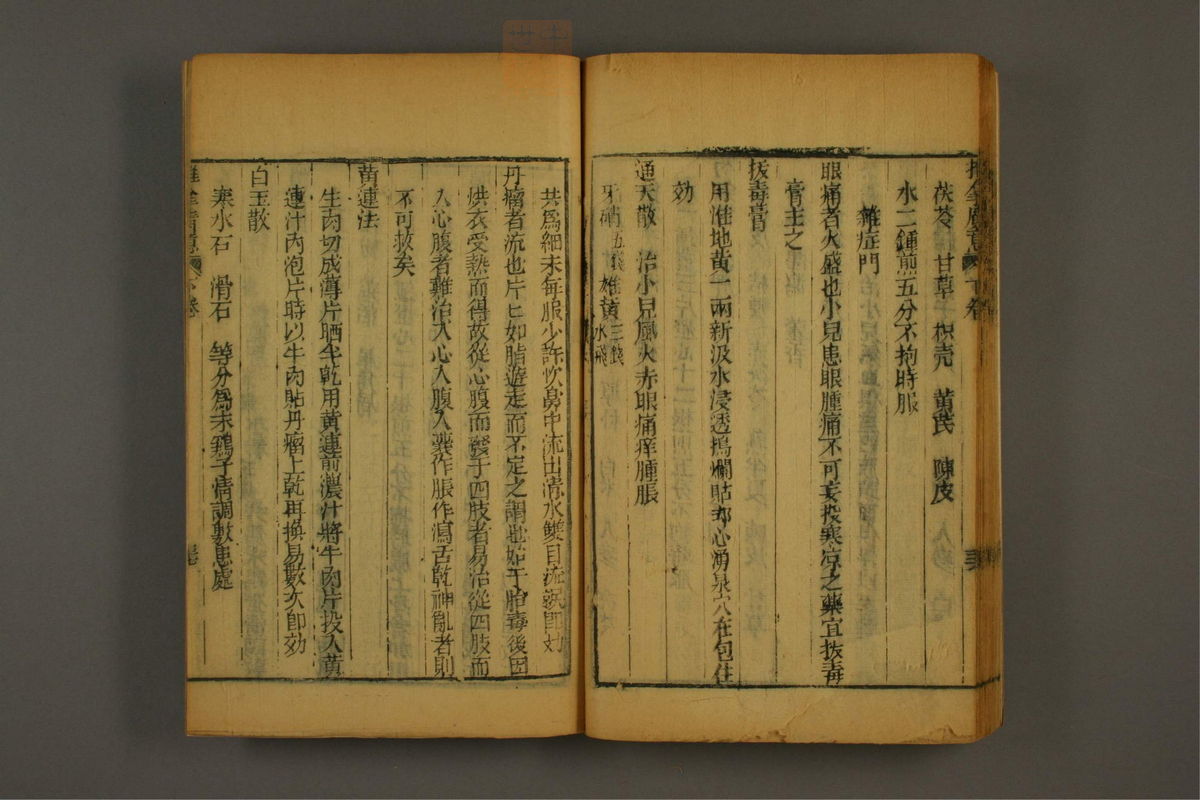 茯苓 甘草 枳壳 黄芪 陳皮
水二鍾煎五分不拘時服
雜症門
眼痛者火盛也小兒患眼腫痛不可妄投寒凉之藥宜拔毒
膏主之
拔毒膏
用淮地黄一兩新汲水浸透搗爛貼脚心湧泉穴在包住
効
通天散 治小兒風火赤眼痛痒腫脹
牙硝五錢 雄黄三錢水飛
共為細末每服少許吹鼻中流出清水雙目流淚即効
丹瘤者流也片片如脂遊走而不定之謂也始于胎毒後因
烘衣受熱而得故從心腹而發于四肢者易治從四肢而
入心腹者難治入心入腹入囊作脹作瀉舌乾神亂者則
不可救矣
黄連法
生肉切成薄片晒半乾用黄連煎濃汁將牛肉片投入黄
連汁內泡片時以牛肉貼丹瘤上乾再換易數次即効
白玉散
寒水石 滑石 等分為末鷄子清調敷患處